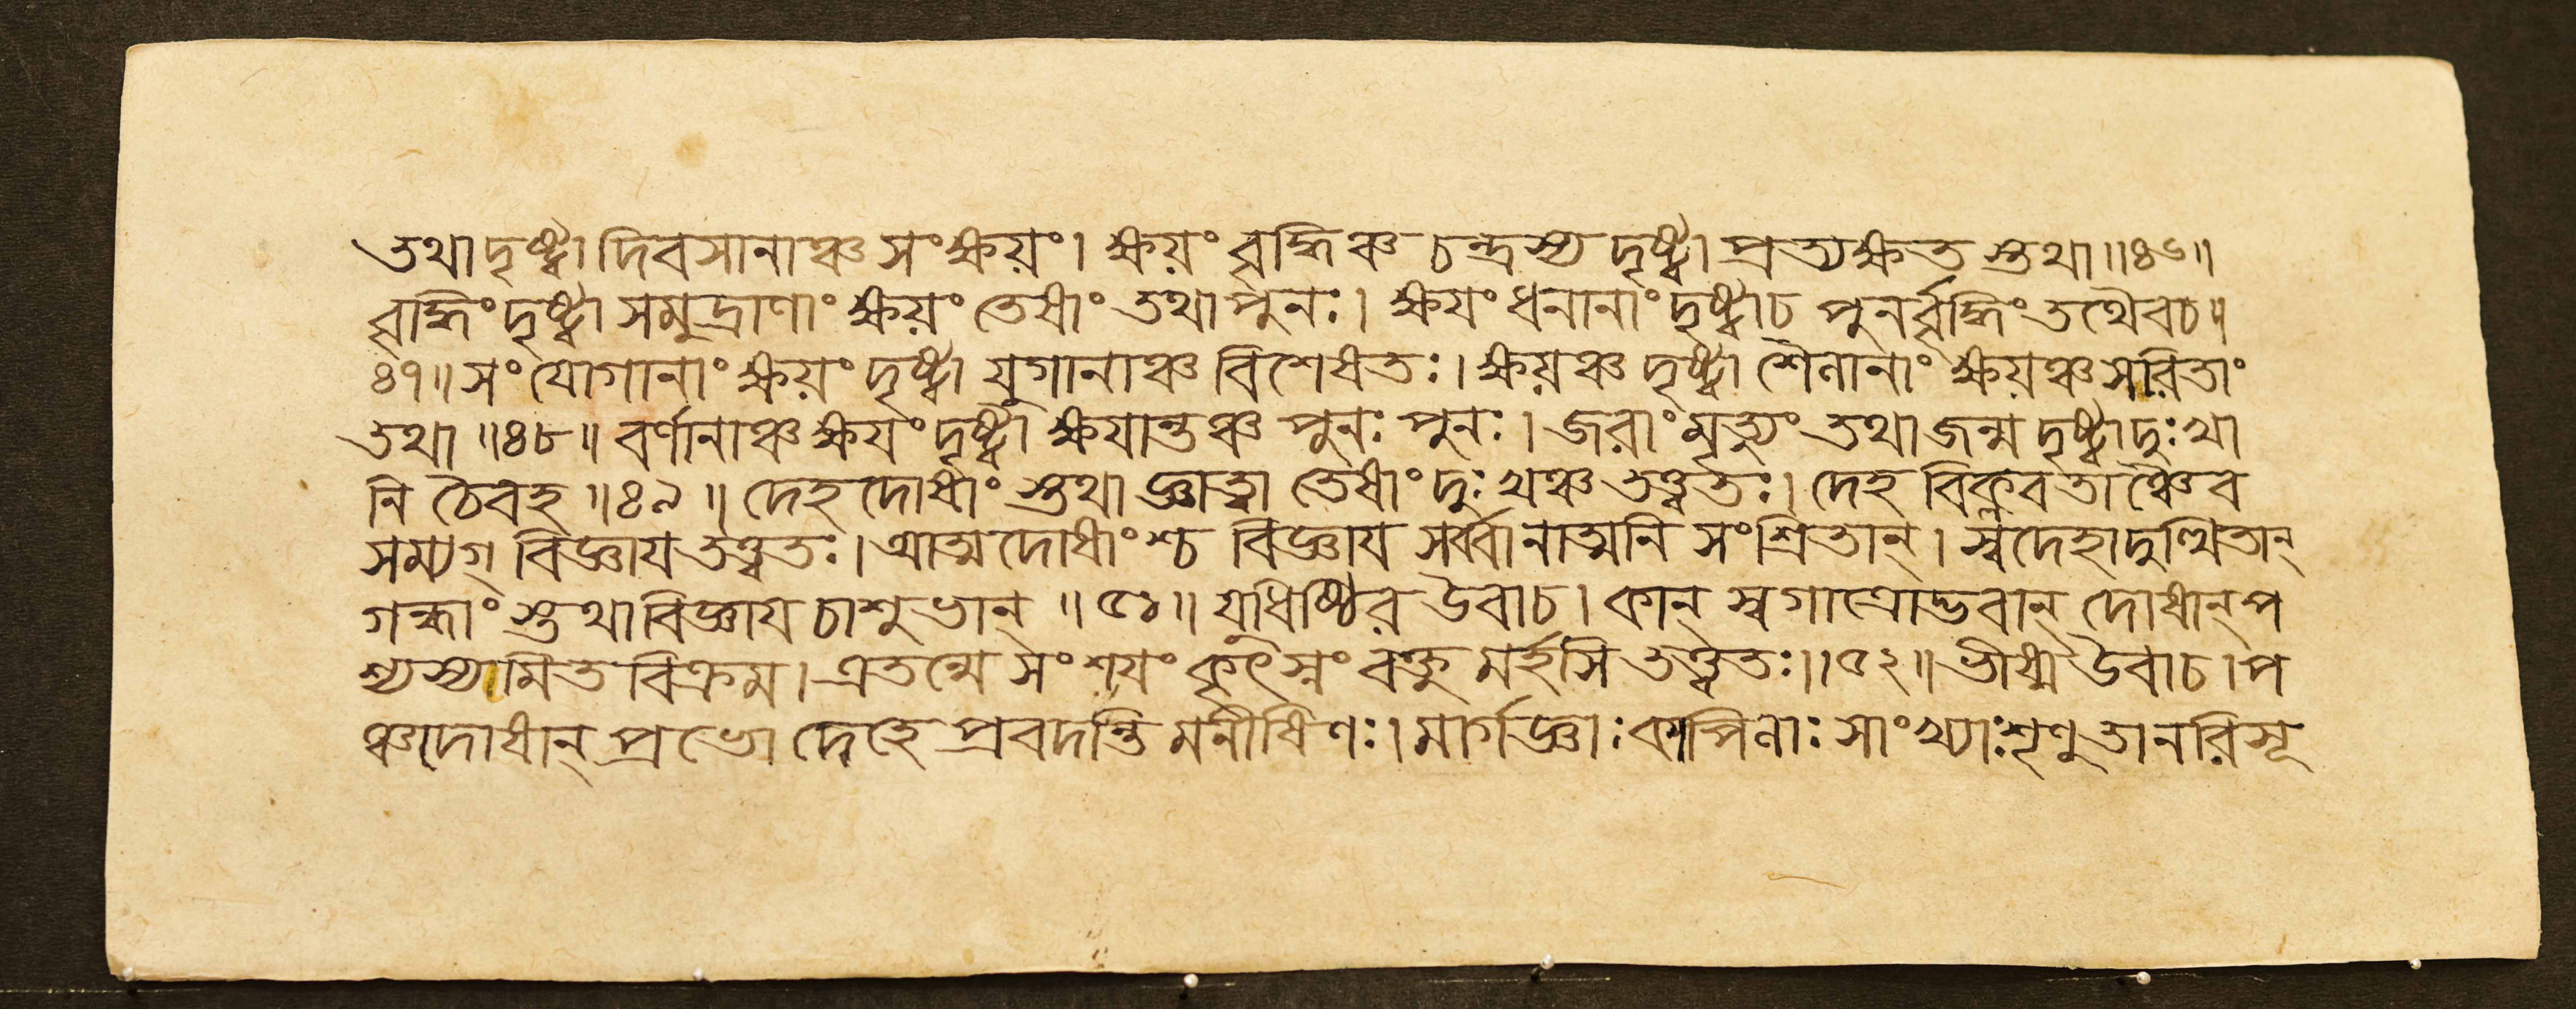 তথা দৃষ্ট্বা দিবসানাঞ্চ সংক্ষয়ং। ক্ষয়ং বৃদ্ধিঞ্চ চন্দ্রস্য দৃষ্ট্বা প্রত্যক্ষত স্তথা॥৪৬॥
বৃদ্ধিং দৃষ্ট্বা সমুদ্রাণাং ক্ষয়ং তেষাং তথা পুনঃ। ক্ষয়ং ধনানাং দৃষ্ট্বা চ পুনর্বৃদ্ধিং তথৈবচ॥
৪৭॥ সংযোগানাং ক্ষয়ং দৃষ্ট্বা যুগানাঞ্চ বিশেষতঃ। ক্ষয়ঞ্চ দৃষ্ট্বা শৈলানাং ক্ষয়ঞ্চ সরিতাং
তথা॥৪৮॥ বর্ণানাঞ্চ ক্ষয়ং দৃষ্ট্বা ক্ষয়ান্তঞ্চ পুনঃ পুনঃ। জরাং মৃত্যুং তথা জন্ম দৃষ্ট্বা দুঃখা
নি চৈবহ॥৪৯॥ দেহ দোষাং স্তথা জ্ঞাত্বা তেষাং দুঃখঞ্চ তত্ত্বতঃ। দেহ বিক্লবতাঞ্চৈব
সম্যগ্ বিজ্ঞায তত্ত্বতঃ। আত্মদোষাংশ্চ বিজ্ঞায সর্ব্বানাত্মনি সংশ্রিতান্। স্বদেহাদুত্থিতান্
গন্ধাং স্তথা বিজ্ঞায চাশুভান্॥৫১॥ যুধিষ্ঠির উবাচ। কান্ স্বগাত্রোদ্ভবান্ দোষান্ প
শ্যস্যামিত বিক্রম। এতন্মে সংশযং কৃৎস্নং বক্তুমর্হসি তত্ত্বতঃ॥৫২॥ ভীষ্ম উবাচ। প
ঞ্চদোষান্ প্রভো দেহে প্রবদন্তি মনীষিণঃ। মার্গজ্ঞাঃ কাপিলাঃ সাংখ্যাঃ শৃণু তানরিসূ